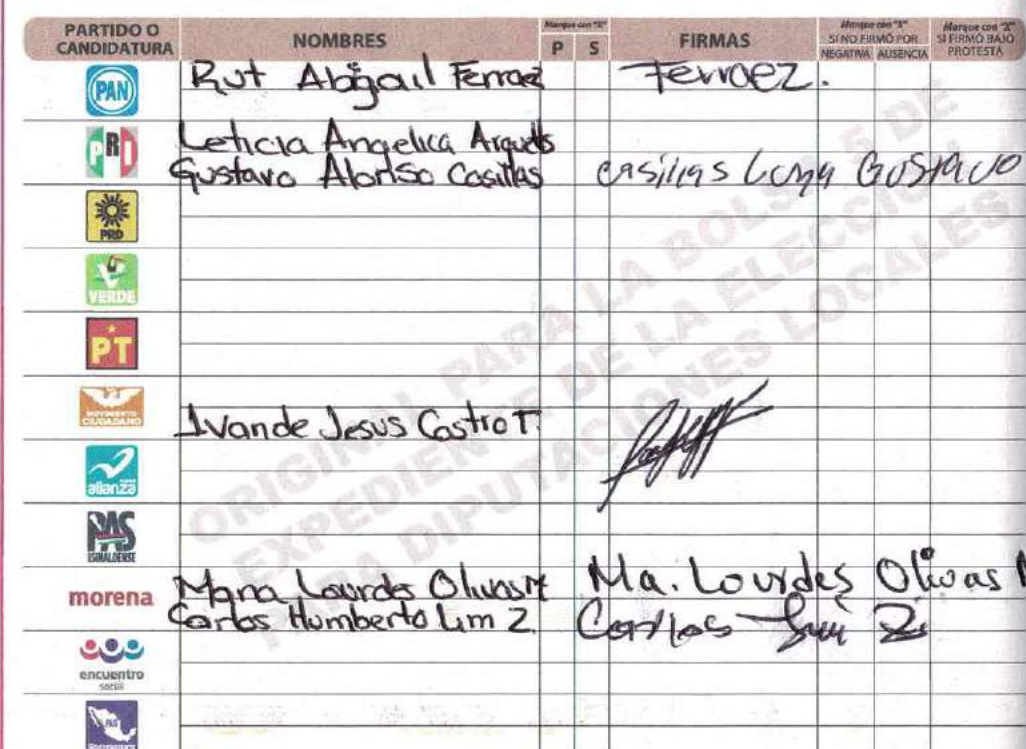 PARTIDO O CANDIDATURA NOMBRES Marque con "X" P S FIRMAS Marque con "X" SI NO FIRMÓ POR NEGATIVA AUSENCIA Marque con "X" SI FIRMÓ BAJO PROTESTA
PAN Rut Abigail Ferraez Ferraez.
PRI Leticia Angelica Arguells
Gustavo Alonso Casillas Casillas Luna Gustavo
PRD
VERDE
PT
MOVIMIENTO CIUDADANO Ivan de Jesus Castro T.
alianza
PAS SINALOENSE
morena Maria Lourdes Olivas M Ma. Lourdes Olivas M
Carlos Humberto Lim Z. Carlos Lim Z
encuentro social
PAN
ORIGINAL PARA LA BOLSA 5 DE
EXPEDIENTE DE LA ELECCIÓN
PARA DIPUTACIONES LOCALES